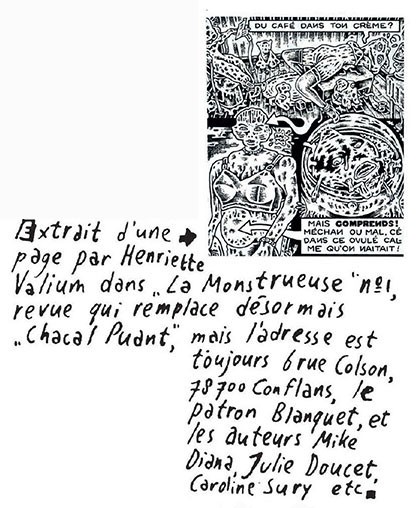 DU CAFÉ DANS TON CRÈME?
MAIS COMPRENDS!
MÉCHAN OU MAL, CÉ
DANS CE OVULÉ CAL-
ME QU'ON NAITAIT!
Extrait d'une
page par Henriette
Valium dans „La Monstrueuse" nº1,
revue qui remplace désormais
„Chacal Puant," mais l'adresse est
toujours 6 rue Colson,
78700 Conflans, le
patron Blanquet, et
les auteurs Mike
Diana, Julie Doucet,
Caroline Sury etc.